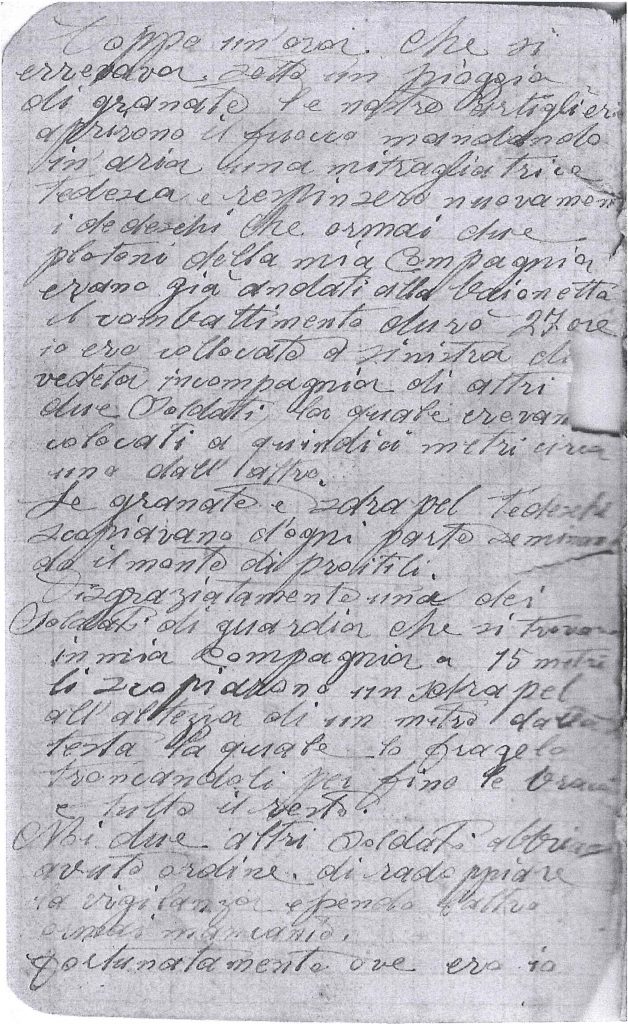 Doppo un'ora che si
erravava sotto un pioggia
di granate le nostre Artiglieri
aprirono il fuoco mandando
in aria una mitragliatrice
tedesca e respinsero nuovamen
i dedeschi che ormai due
plotoni della mia Compagnia
erano già andati alla baionetta
il combattimento durò 27 ore
io ero collocato a sinistra di
vedeta incompagnia di altri
due Soldati, la quale erevam
colocati a quindici metri circa
uno dall'altro.
Le granate e sdrapel tedeschi
scopiavano d'ogni parte seminan
do il monte di proitili.
Disgraziatamente una dei
Soldati di guardia che si trovava
in mia Compagnia a 15 metri
li scopiarono un sdrapel
all'altezza di un metro dalla
testa la quale lo fragelo
troncandoli per fino le braci
e tutto il resto.
Noi due altri Soldati abbiam
avuto ordine di radoppiare
la vigilanza essendo l'altro
ormai mancante.
Fortunatamente ove ero io